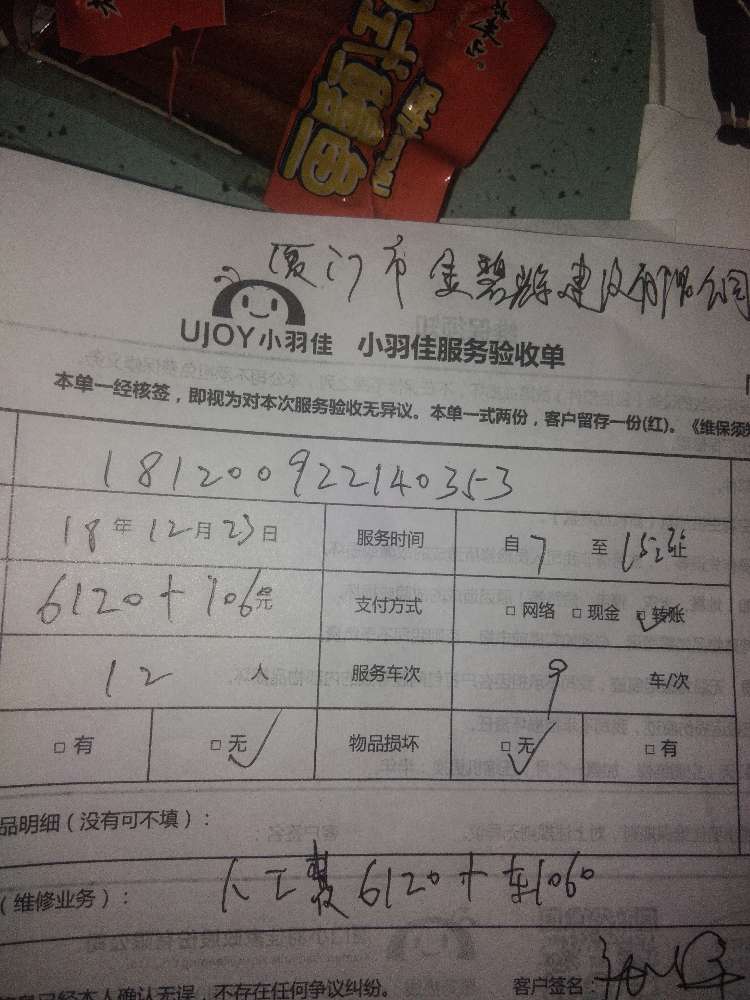 厦门市金碧辉建设有限公司
UJOY小羽佳 小羽佳服务验收单
本单一经核签，即视为对本次服务验收无异议。本单一式两份，客户留存一份(红)。《维保须知
181200922140353
18年12月23日 服务时间 自7 至
6120+106元 支付方式 □网络 □现金 □转账
12 人 服务车次 9 车/次
□有 □无 物品损坏 □无 □有
品明细（没有可不填）：
（维修业务）： 人工费6120+车1060
已经本人确认无误，不存在任何争议纠纷。 客户签名：